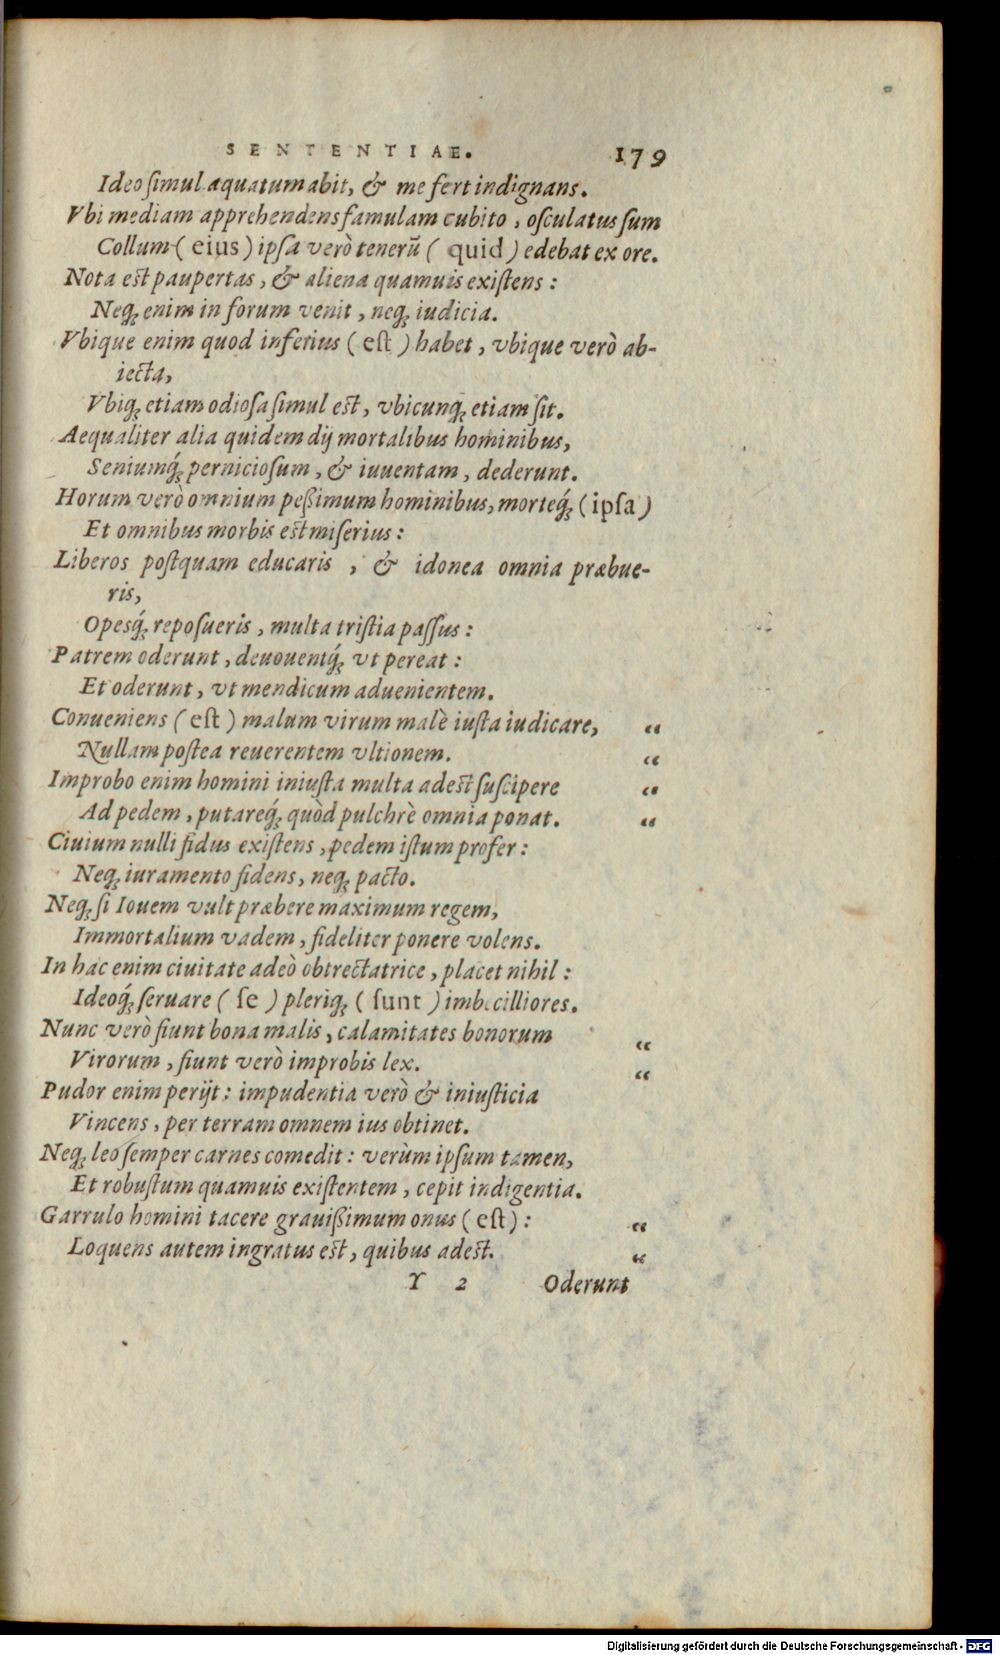 SENTENTIAE. 179
Ideo ſimul aquatum abit, & me fert indignans.
Vbi mediam apprehendens famulam cubito, oſculatus ſum
Collum (eius) ipſa verò tenerũ (quid) edebat ex ore.
Nota eſt paupertas, & aliena quamuis exiſtens:
Neq; enim in forum venit, neq; iudicia.
Vbique enim quod inferius (eſt) habet, vbique verò ab-
iecta,
Vbiq; etiam odioſa ſimul eſt, vbicunq; etiam ſit.
Aequaliter alia quidem dij mortalibus hominibus,
Seniumq́; pernicioſum, & iuuentam, dederunt.
Horum verò omnium peßimum hominibus, morteq́; (ipſa)
Et omnibus morbis eſt miſerius:
Liberos poſtquam educaris, & idonea omnia præbue-
ris,
Opesq́; repoſueris, multa triſtia paſſus:
Patrem oderunt, deuouentq́; vt pereat:
Et oderunt, vt mendicum aduenientem.
Conueniens (eſt) malum virum malè iuſta iudicare, “
Nullam poſtea reuerentem vltionem. “
Improbo enim homini iniuſta multa adeſt ſuſcipere “
Ad pedem, putareq́; quòd pulchrè omnia ponat. “
Ciuium nulli fidus exiſtens, pedem iſtum profer:
Neq; iuramento fidens, neq; pacto.
Neq; ſi Iouem vult præbere maximum regem,
Immortalium vadem, fideliter ponere volens.
In hac enim ciuitate adeò obtrectatrice, placet nihil:
Ideoq́; ſeruare (ſe) pleriq; (ſunt) imbecilliores.
Nunc verò fiunt bona malis, calamitates bonorum “
Virorum, fiunt verò improbis lex. “
Pudor enim perijt: impudentia verò & iniuſticia
Vincens, per terram omnem ius obtinet.
Neq; leo ſemper carnes comedit: verùm ipſum tamen,
Et robuſtum quamuis exiſtentem, cepit indigentia.
Garrulo homini tacere grauißimum onus (eſt): “
Loquens autem ingratus eſt, quibus adeſt. “
Y 2 Oderunt
Digitalisierung gefördert durch die Deutsche Forschungsgemeinschaft - DFG